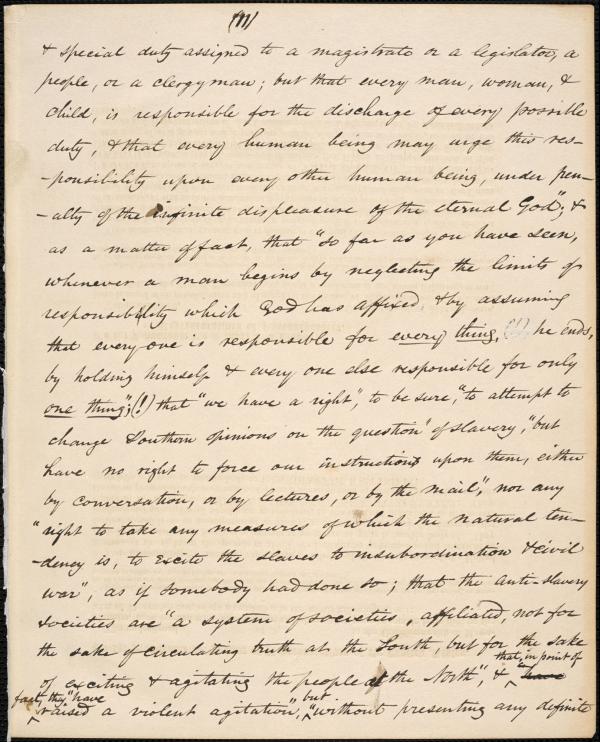 (11)
& special duty assigned to a magistrate or a legislator, a
people, or a clergyman; but that every man, woman, &
child, is responsible for the discharge of every possible
duty, & that every human being may urge this res-
-ponsibility upon every other human being, under pen-
-alty of the infinite displeasure of the eternal God"; &
as a matter of fact, that "so far as you have seen,
whenever a man begins by neglecting the limits of
responsibility which God has affixed, & by assuming
that every one is responsible for every thing, (!) he ends,
by holding himself & every one else responsible for only
one thing"; (!) that "we have a right", to be sure, "to attempt to
change Southern opinions on the question" of slavery, "but
have no right to force our instructions upon them, either
by conversation, or by lectures, or by the mail", nor any
"right to take any measures of which the natural ten-
-dency is, to excite the slaves to insubordination & civil
war", as if somebody had done so; that the anti-slavery
societies are "a system of societies, affiliated, not for
the sake of circulating truth at the South, but for the sake
of exciting & agitating the people at the North", & that, in point of
fact, they "have raised a violent agitation", but "without presenting any definite